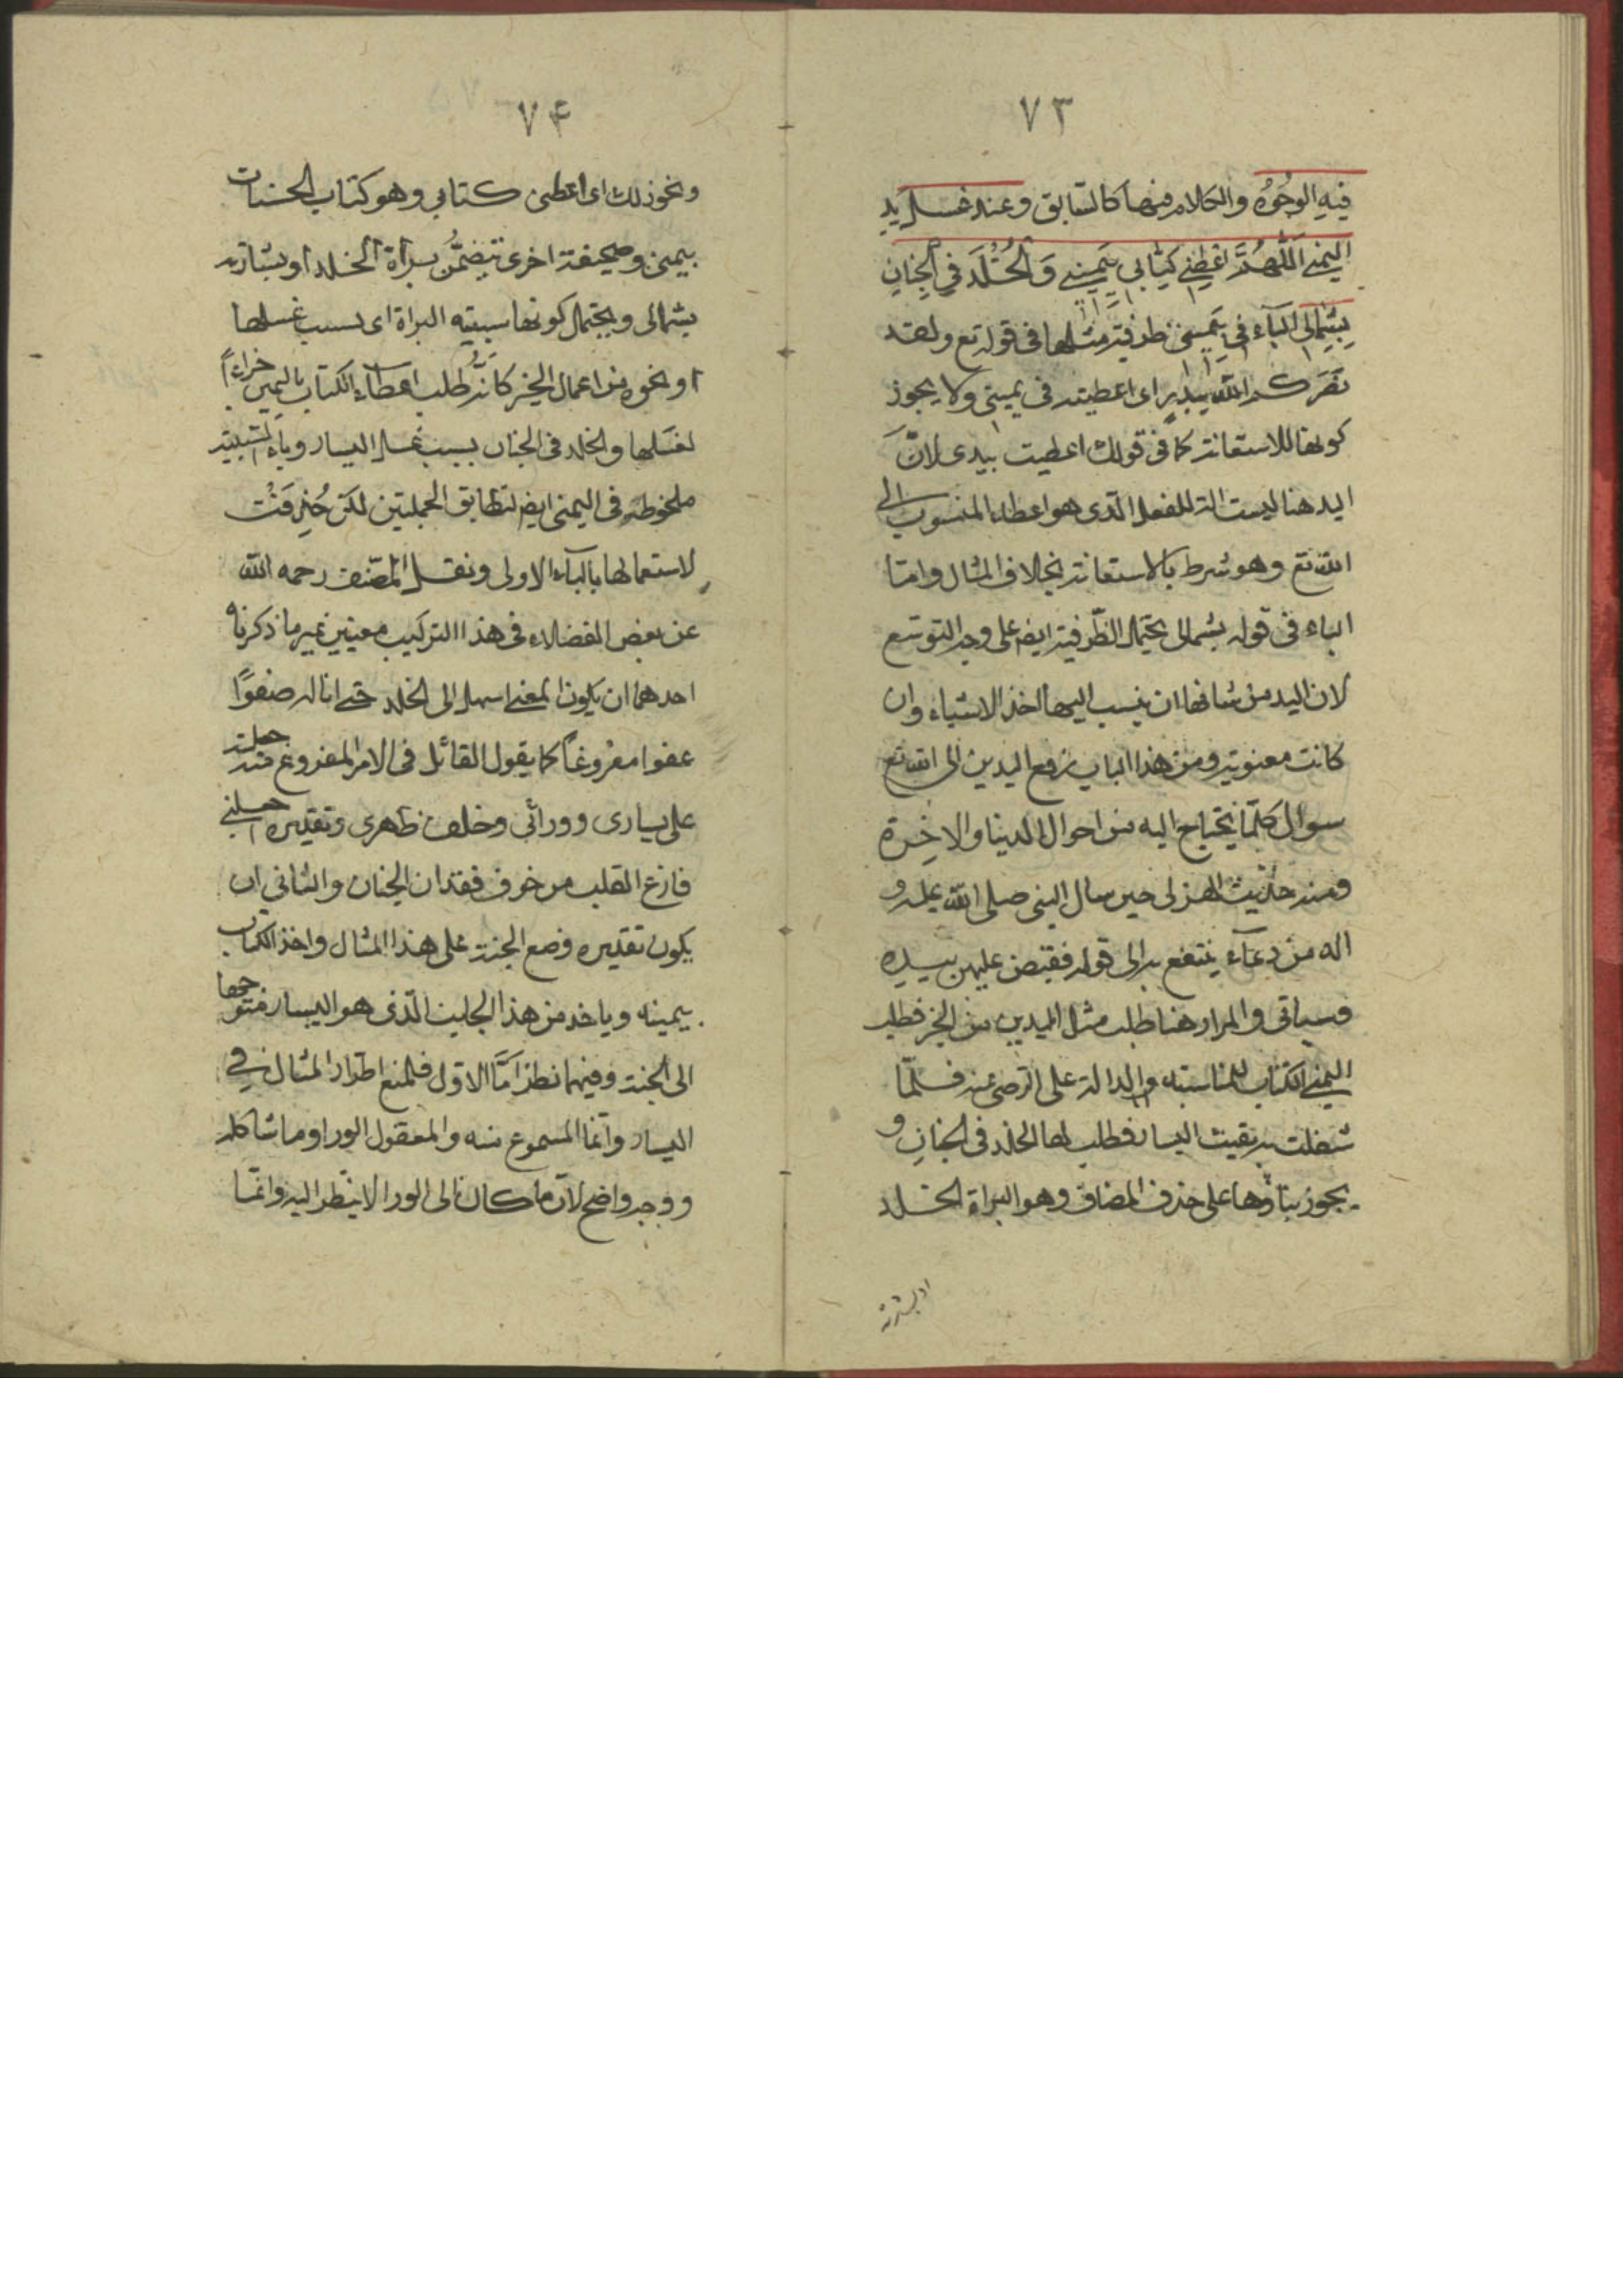 ٧٣
فيهِ الوُجُوُه والكلام فيها كالسّابق وعند غسل يد
اليمنى اَللّهُمَّ اَعْطِني كِتابي بِيَميني وَالخُلْدَ فِي الجِنانِ
بِشِمالي الباء في بِيَميني ظرفية مثلها في قوله تع ولقد
نَصَركم اللّه بِبَدْرٍ اى اعطيته في يميني ولا يجوز
كونها للاستعانة كما في قولك اعطيت بيدى لانَّ
اليد هنا ليست الة للفعل الّذى هو اعطاء المنسوب الى
اللّه تع وهو شرط بالاستعانة بخلاف المثال وامّا
الباء في قوله بشمالى يحتمل الظّرفية ايضا على وجه التوسّع
لان اليد من شانها ان ينسب اليها اخذ الاشياء وان
كانت معنوية ومن هذا الباب رفع اليدين الى اللّه تع
سوال كلّما يحتاج اليه من احوال الدنيا والاخِرة
ومنه حديث الهزلى حين سال النبي صلى اللّه عليه و
اله من دعآء ينتفع به الى قوله فقبض عليهن بيده
وسياتى والمراد هنا طلب مثل اليدين من الخير فطلب
اليمنى الكتاب للمناسبته والدالة على الرضى عنه فلمّا
شغلت به بقيت اليسار فطلب لها الخلد في الجنانِ و
يجوز بناؤها على حذف المضاف وهو البراة الخلد
او بشارته
٧۴
ونحو ذلك اى اعطنى كتابي وهو كتاب الحسنات
بيمنى وصحيفة اخرى تتضمَّنُ براة الخلد او بشارته
بشمالى ويحتمل كونها سببيته البراة اى بسبب غسلها
او نحوه من اعمال الخير كانَّه طلب اعطاء الكتاب باليمين جزاءً
لغسلها والخلد في الجنان بسبب غسل اليسار وباء السّببيّة
ملحوظه في اليمنى ايضا لتطابق الجملتين لكن حُذِفَتْ
لاستعمالها بالباء الاولى ونقل المصّنف رحمه اللّه
عن بعض الفضلاء في هذا التركيب معنيين غير ما ذكرناه
احدهما ان يكون المعنى اسهل الى الخلد حتى اناله صفوًا
عفوا مفروغاً كما يقول القائل في الامر المفروغ منه جعلته
على يسارى وورائى وخلف ظهرى وتقديره اجعلنى
فارغ القلب من خوف فقدان الجنان والثانى ان
يكون تقديره وضع الجنة على هذا المثال واخذ الكتاب
بيمينه وياخذ من هذا الجانب الّذى هو اليسار متوّجها
الى الجنة وفيهما نظر امَّا الاوّل فلمنع اطراد المثال في
اليسار وانّما المسموع منه والمعقول الورا وما شاكله
ووجهه واضح لانّ ما كان الى الورا لا ينظر اليه وانّما